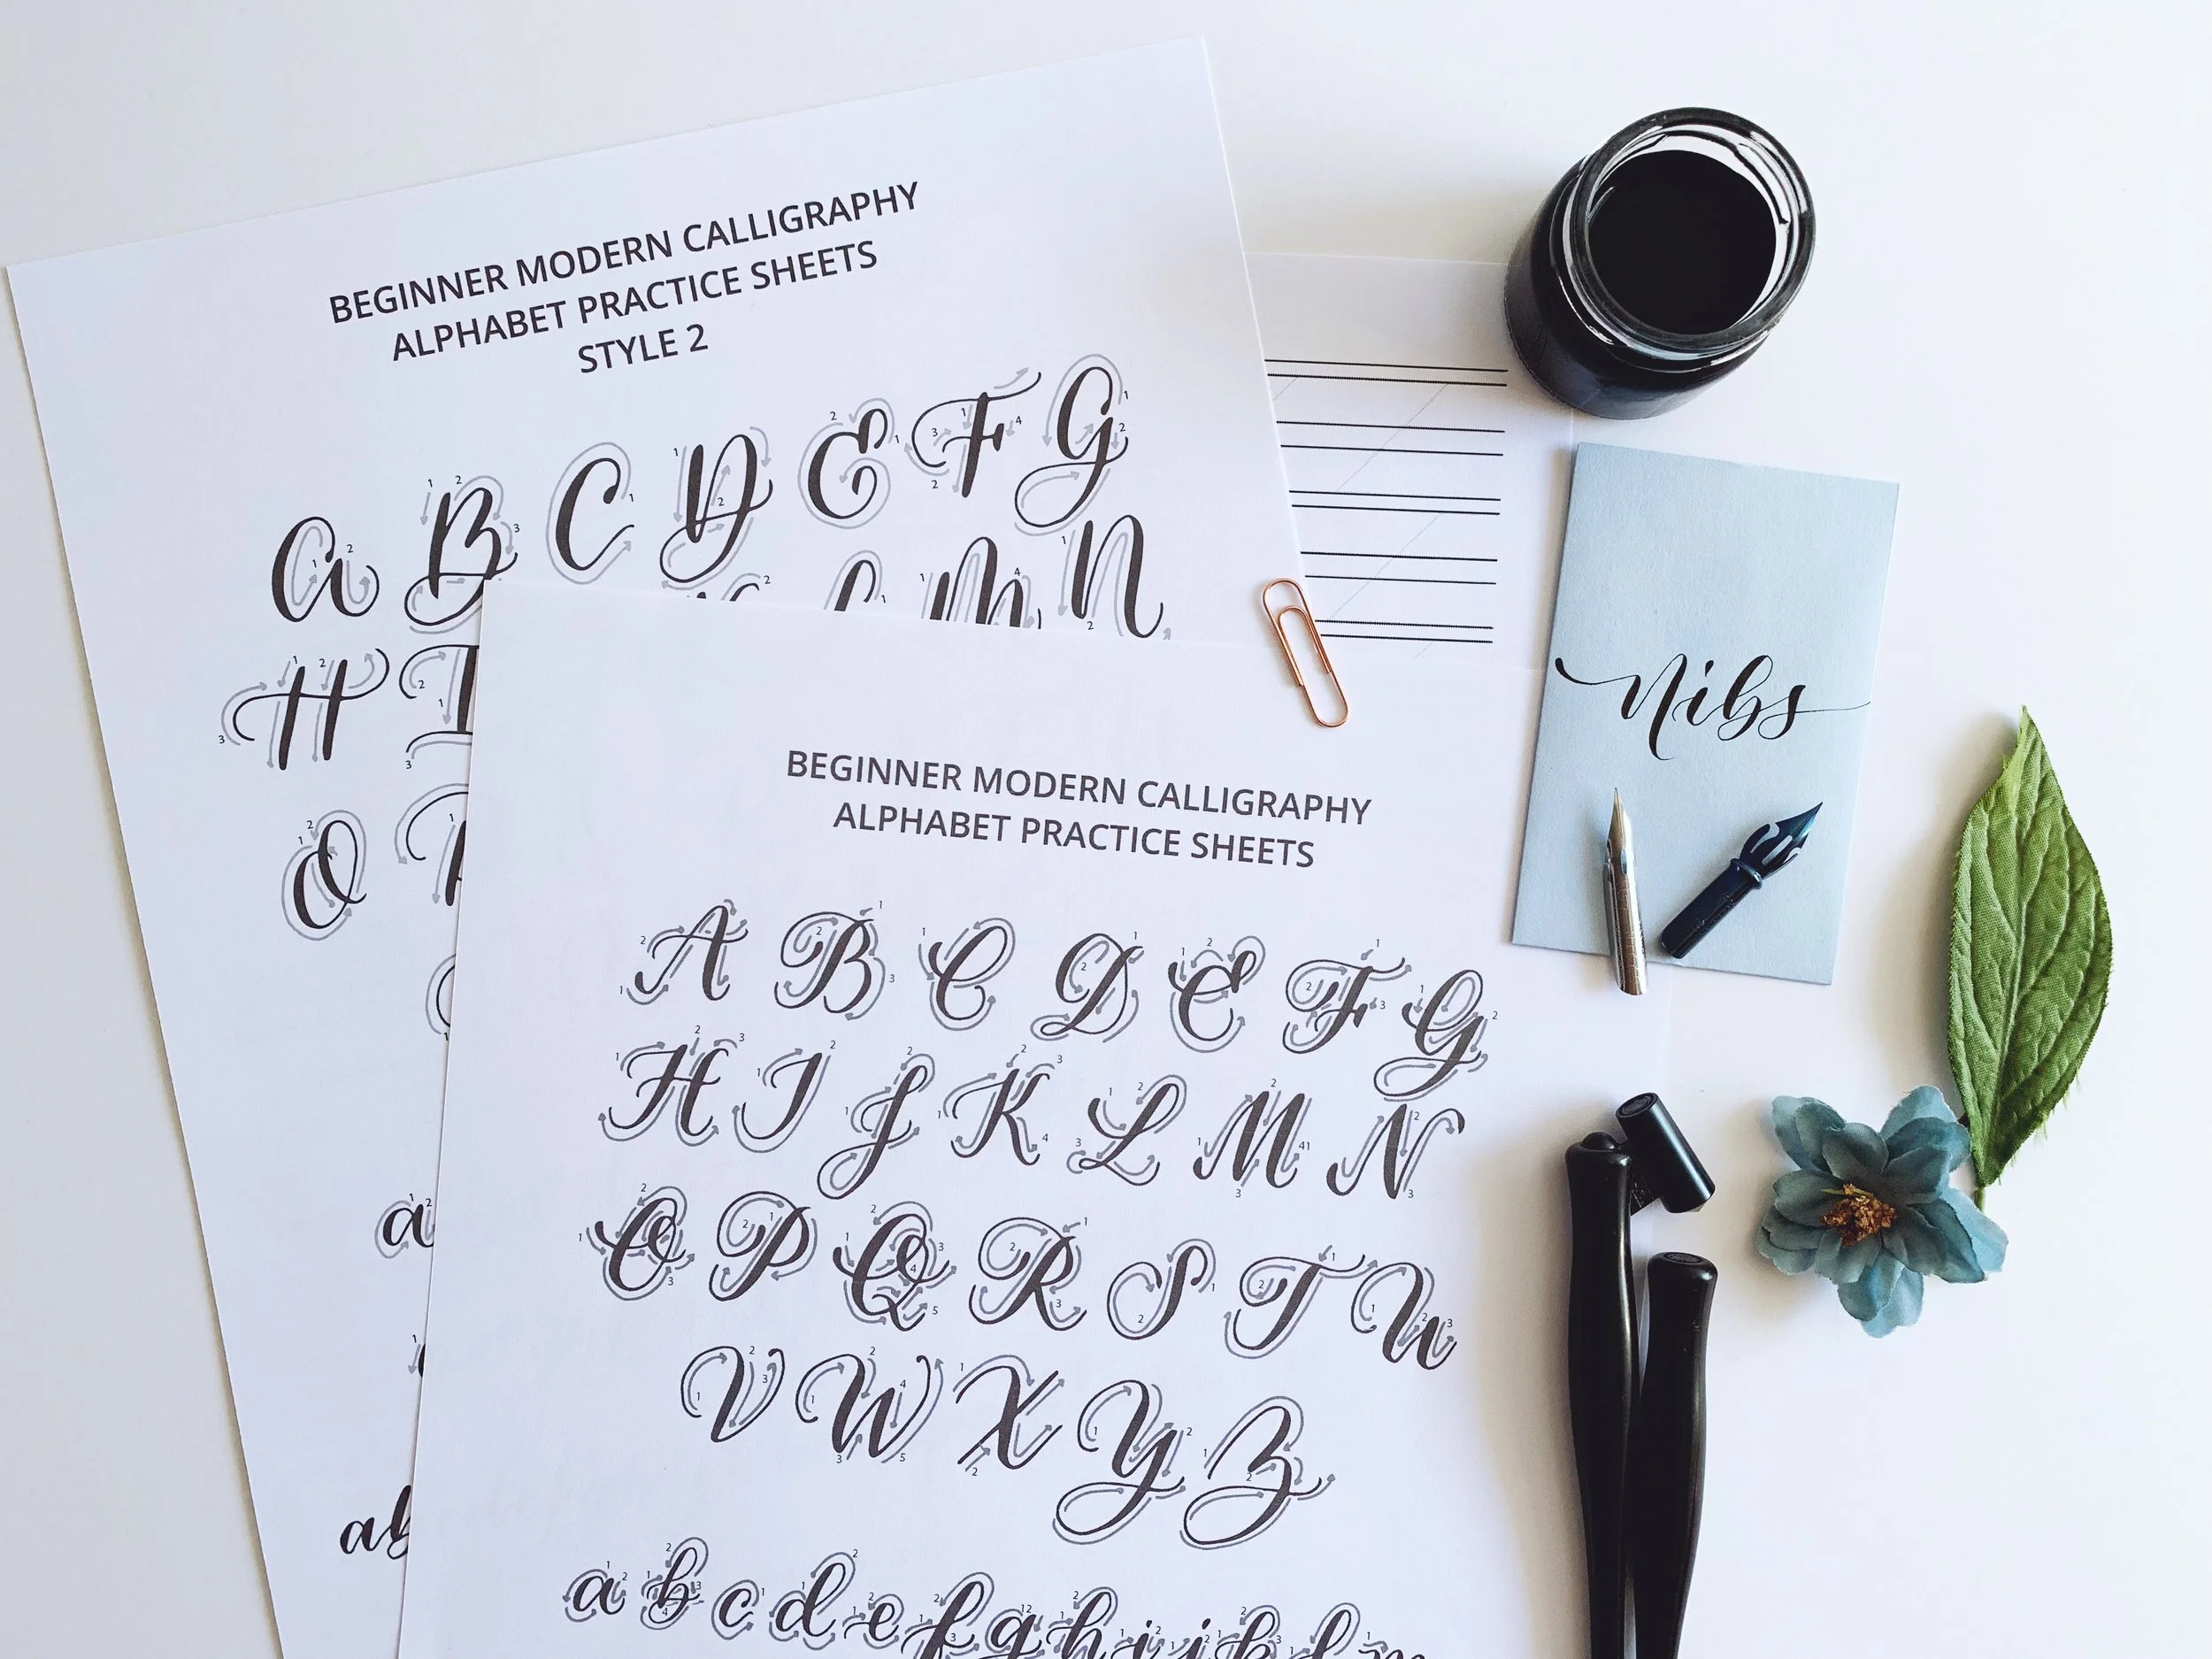 BEGINNER MODERN CALLIGRAPHY
ALPHABET PRACTICE SHEETS
STYLE 2
A B C D E F G
M N
H I
O
a
ab
Nibs
BEGINNER MODERN CALLIGRAPHY
ALPHABET PRACTICE SHEETS
A B C D E F G
H I J K L M N
O P Q R S T U
V W X Y Z
a b c d e f g h i j k l m